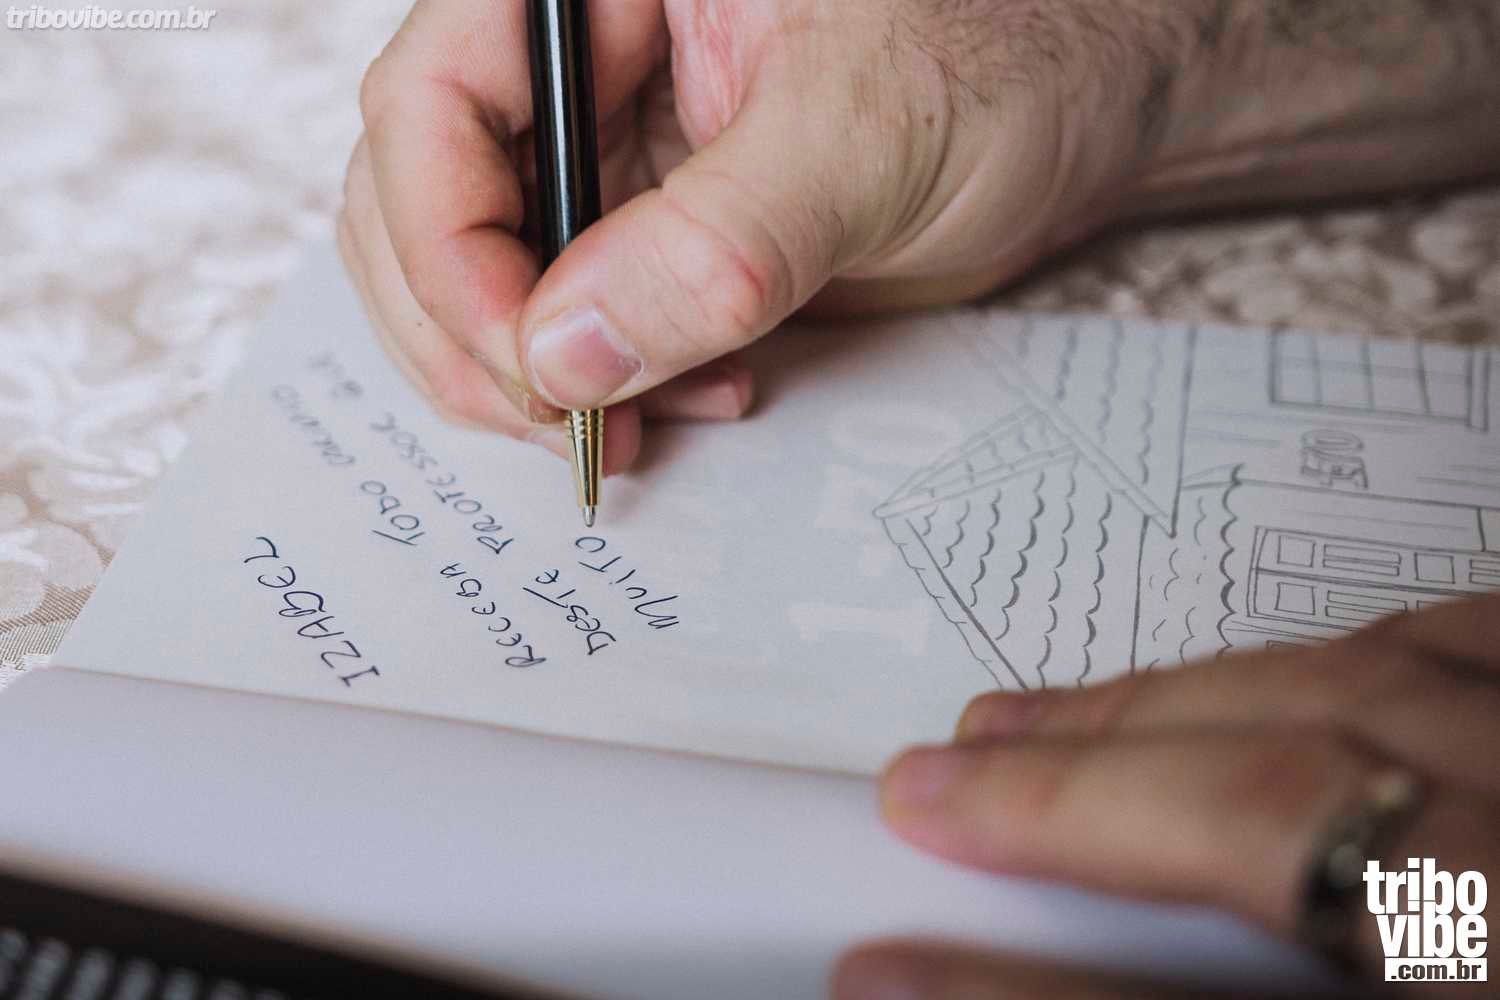 tribovibe.com.br
IZABEL
RECEBA TODO CARINHO
DESTE PROFESSOR QUE
MUITO
1170
170
tribo
vibe
.com.br